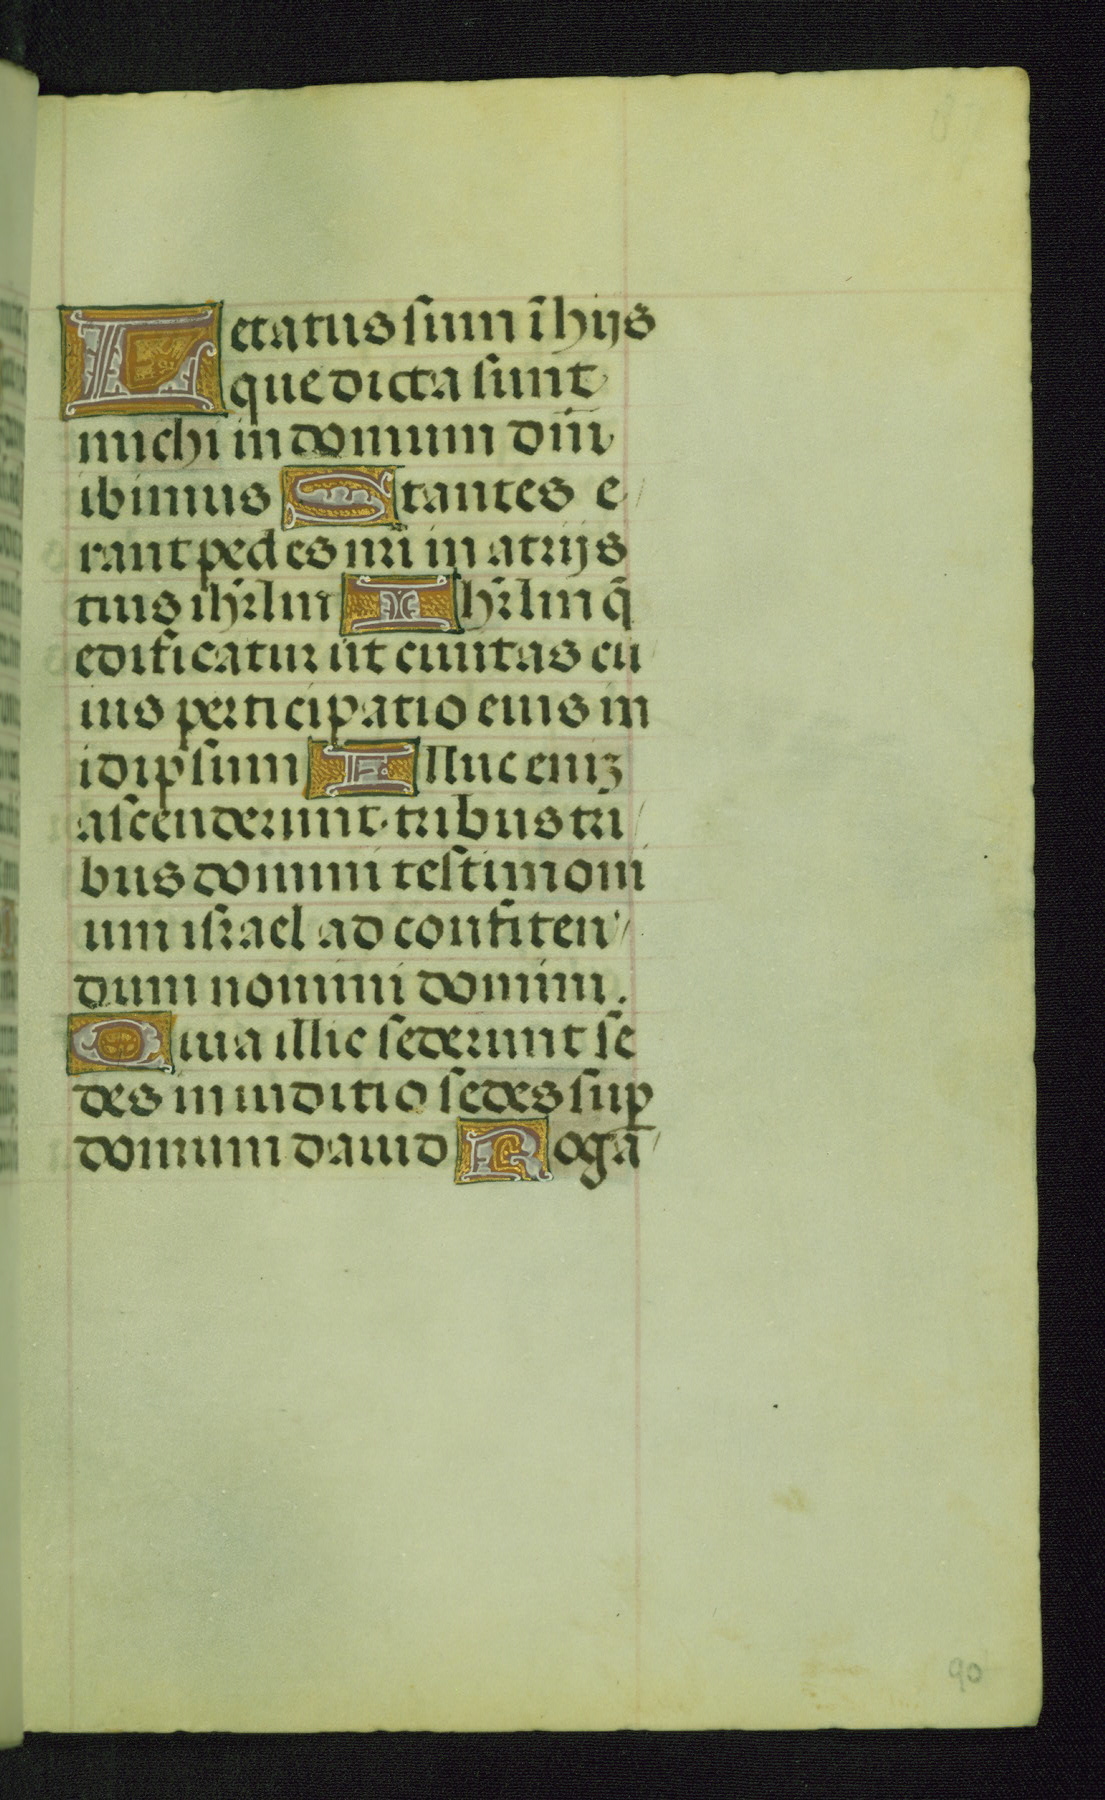 Letatus sum ī hijs
que dicta sunt
michi in domum dm̄
ibimus Stantes e
rant pedes nr̄i in atrijs
tuis ihr̄lm Ihr̄lm q̄
edificatur ut ciuitas cu
ius perticipatio eius in
idipsum Illuc eniꝫ
ascenderunt tribus tri
bus domini testimoni
um israel ad confiten
dum nomini domini.
Quia illic sederunt se
des in iuditio sedes suꝑ
domum dauid Rogā
90